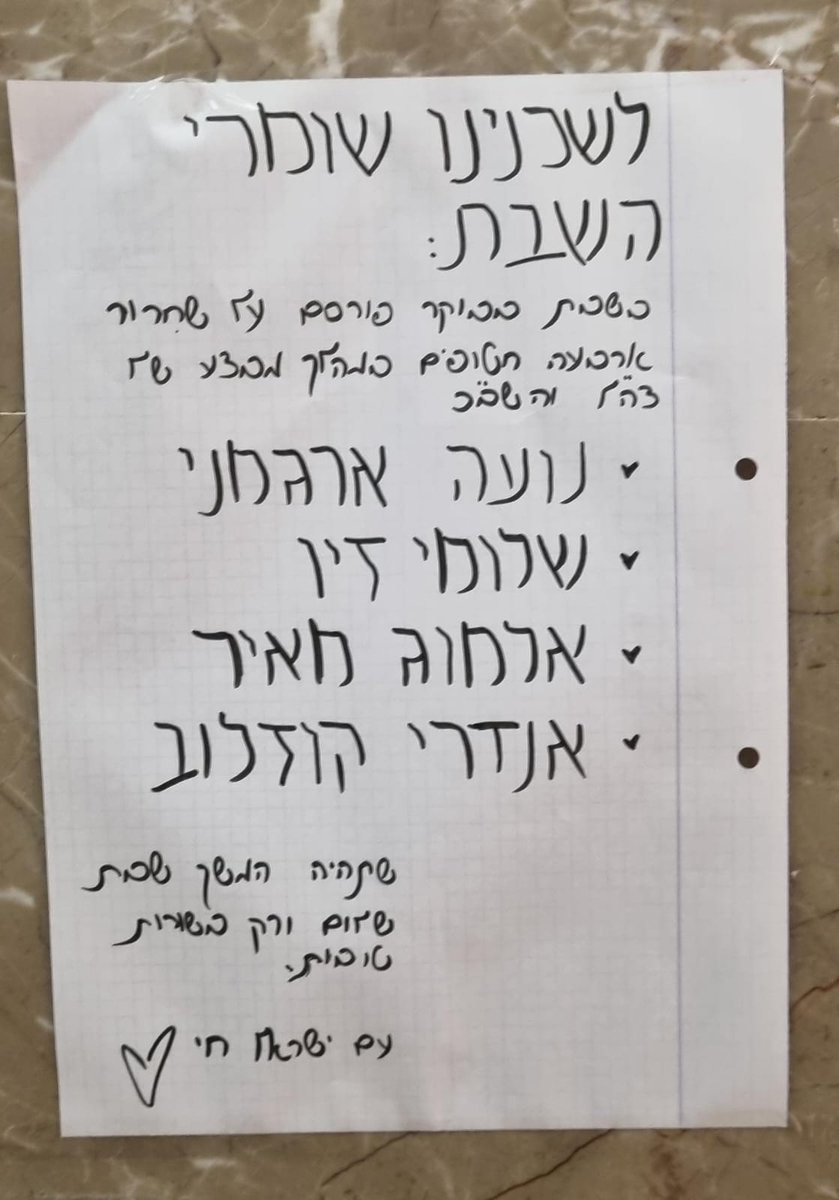 לשכנינו שומרי
השבת:
בשבת בבוקר פורסם על שחרור
ארבעה חטופים במהלך מבצע של
צה"ל והשב"כ
נועה ארגמני
שלומי זיו
אלמוג מאיר
אנדרי קוזלוב
שתהיה המשך שבת
שלום ורק בשורות
טובות.
עם ישראל חי